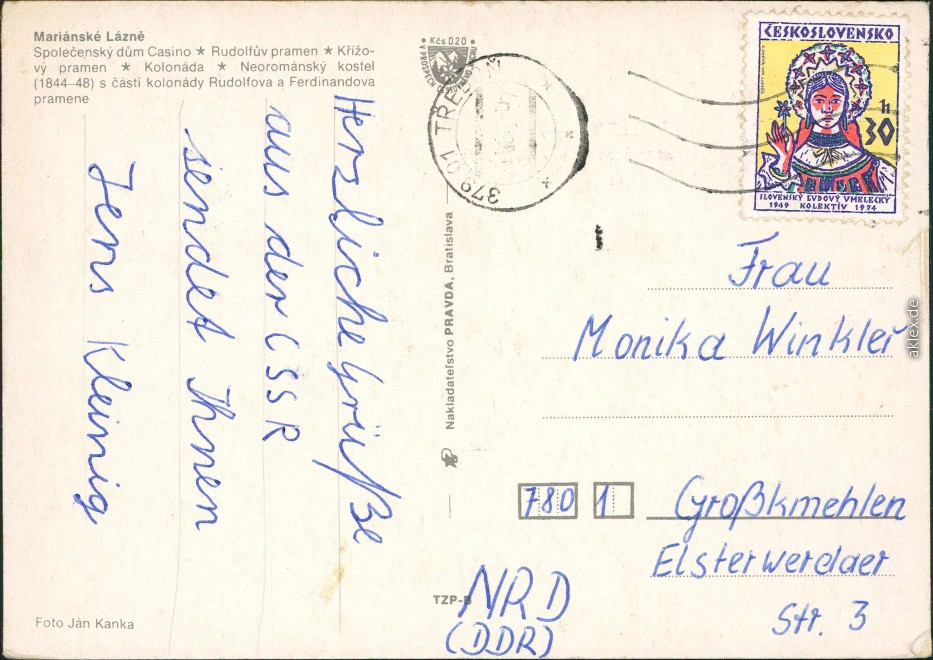 Mariánské Lázně
Společenský dům Casino ★ Rudolfův pramen ★ Křížo-
vý pramen ★ Kolonáda ★ Neorománský kostel
(1844–48) s částí kolonády Rudolfova a Ferdinandova
pramene
Herzliche Grüße
aus der CSSR
sendet Ihnen
Jens Kleinig
Foto Ján Kanka
Kčs 0.20
379 01 TŘE
Nakladateľstvo PRAVDA, Bratislava
TZP-B
ČESKOSLOVENSKO
30 h
SLOVENSKÝ ĽUDOVÝ UMELECKÝ
1949 KOLEKTÍV 1974
Frau
Monika Winkler
780 1 Großkmehlen
Elsterwerdaer
Str. 3
NRD
(DDR)
aklex.de